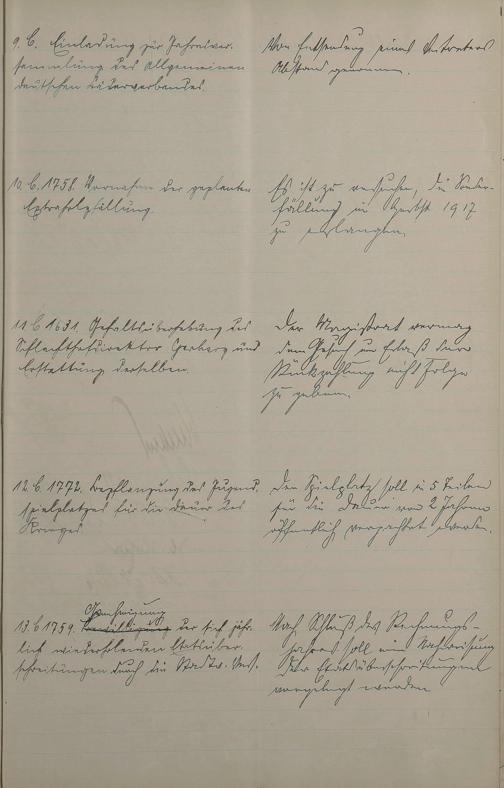 9. C. Einladung zur Jahresver-
sammlung des Allgemeinen
deutschen Bäderverbandes.
Von Entsendung eines Vertreters
Abstand genommen.
10. C. 1758. Vornahme der geplanten
Extraholzfällung.
Es ist zu versuchen, die Sonder-
fällung im Herbst 1917
zu erlangen.
11. C 1631. Gehaltsüberhebung des
Schlachthofdirektor Gerberg und
Erstattung derselben.
Der Magistrat vermag
dem Gesuch um Erlaß der
Rückzahlung nicht Folge
zu geben.
12. C. 1772. Bepflanzung des Jugend-
spielplatzes für die Dauer des
Krieges
Der Spielplatz soll in 5 Teilen
für die Dauer von 2 Jahren
öffentlich verpachtet werden.
Genehmigung
13. C 1759. der sich jähr-
lich wiederholenden Etatsüber-
schreitungen durch die Stadtv. Vers.
Nach Schluß des Rechnungs-
jahres soll eine Nachweisung
der Etatsüberschreitungen
vorgelegt werden